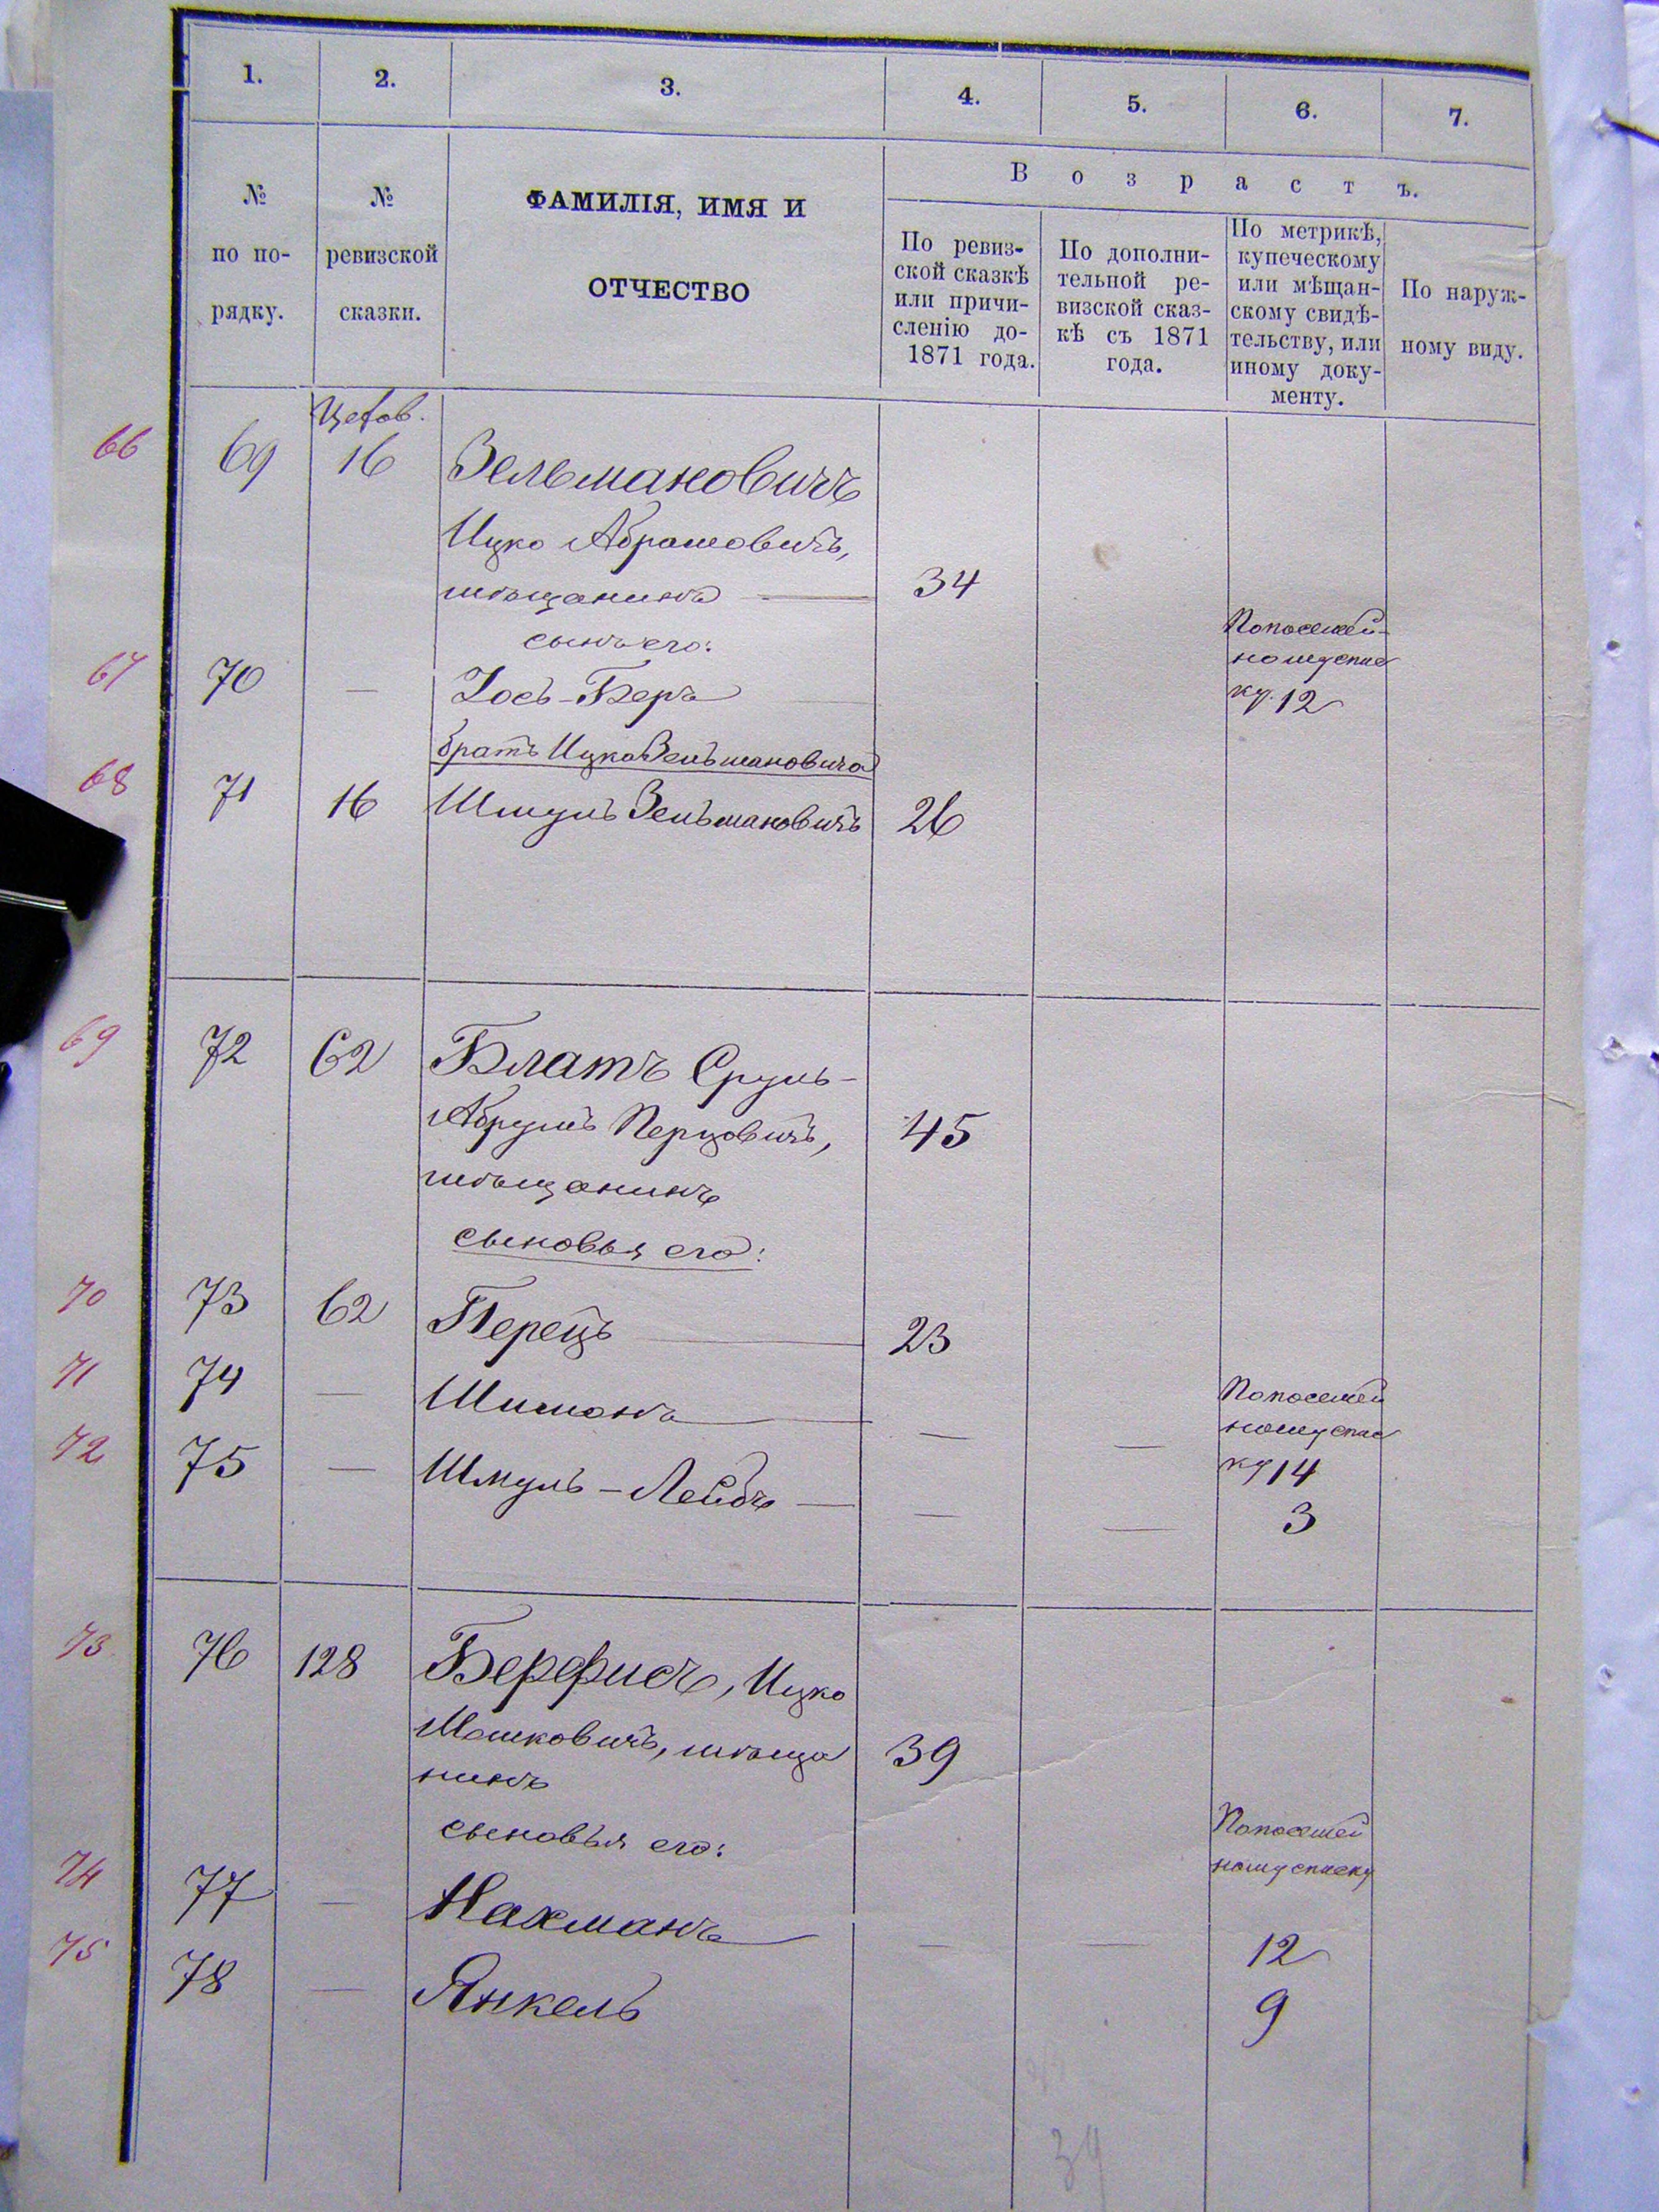 1. 2. 3. 4. 5. 6. 7.
В о з р а с т ъ.
№ по по- рядку.
№ ревизской сказки.
ФАМИЛІЯ, ИМЯ И
ОТЧЕСТВО
По ревиз-
ской сказкѣ
или причи-
сленію до-
1871 года.
По дополни-
тельной ре-
визской сказ-
кѣ съ 1871
года.
По метрикѣ,
купеческому
или мѣщан-
скому свидѣ-
тельству, или
иному доку-
менту.
По наруж-
ному виду.
66 69 16 Зельмановичъ
Ицко Абрамовичъ,
мѣщанинъ — 34
сынъ его:
67 70 — Іось-Беръ
По посемей-
ному спис
ку. 12
братъ Ицка Зельмановича
68 71 16 Шмуль Зельмановичъ 26
69 72 62 Блатъ Сруль-
Абрумъ Перцовичъ, 45
мѣщанинъ
сыновья его:
70 73 62 Перецъ — 23
71 74 — Шимонъ — — —
По посемей
ному спис
ку 14
72 75 — Шмуль-Лейбъ — — — 3
73 76 128 Берфисъ, Ицко
Мошковичъ, мѣща 39
нинъ
сыновья его:
По посемей
ному списку
74 77 — Нахманъ — — — 12
75 78 — Янкель 9
39